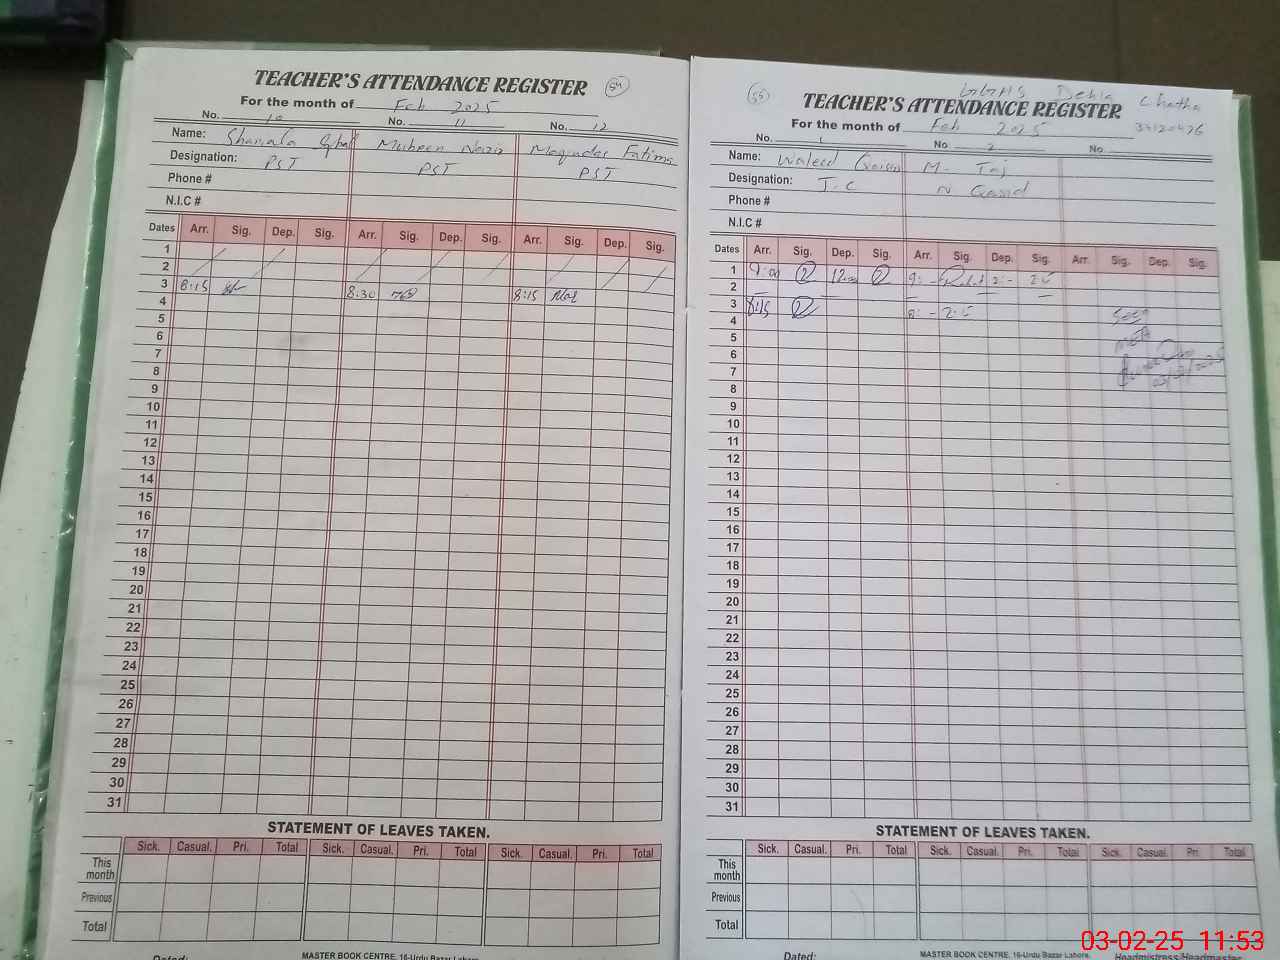 TEACHER'S ATTENDANCE REGISTER 54
For the month of Feb 2025
No. 10 No. 11 No. 12
Name: Shamala Iqbal Mubeen Nazir Maqudas Fatima
Designation: PST PST PST
Phone #
N.I.C #
Dates Arr. Sig. Dep. Sig. Arr. Sig. Dep. Sig. Arr. Sig. Dep. Sig.
1
2
3 8:15 8:30 8:15
4
5
6
7
8
9
10
11
12
13
14
15
16
17
18
19
20
21
22
23
24
25
26
27
28
29
30
31
STATEMENT OF LEAVES TAKEN.
Sick. Casual. Pri. Total Sick. Casual. Pri. Total Sick. Casual. Pri. Total
This month
Previous
Total
Dated:
MASTER BOOK CENTRE, 16-Urdu Bazar Lahore.
55 GGHS Dehla Chatha
TEACHER'S ATTENDANCE REGISTER
34120476
For the month of Feb 2025
No. 1 No 2 No.
Name: Waleed M. Taj
Designation: T.C N
Phone #
N.I.C #
Dates Arr. Sig. Dep. Sig. Arr. Sig. Dep. Sig. Arr. Sig. Dep. Sig.
1 9:00 12:00 9:- 2:-
2
3 8:15 8:-
4
5
6
7
8
9
10
11
12
13
14
15
16
17
18
19
20
21
22
23
24
25
26
27
28
29
30
31
STATEMENT OF LEAVES TAKEN.
Sick. Casual. Pri. Total Sick. Casual. Pri. Total Sick. Casual. Pri. Total
This month
Previous
Total
Dated:
MASTER BOOK CENTRE, 16-Urdu Bazar Lahore.
Headmistress/Headmaster
03-02-25 11:53